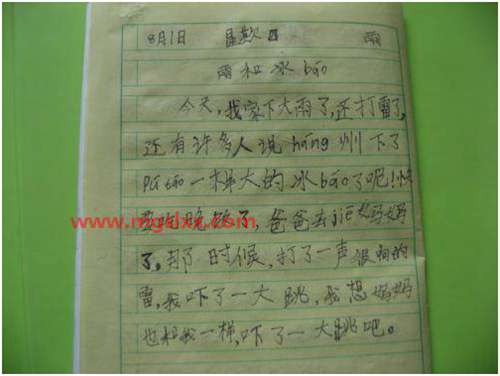 8月1日 星期日 雨
雨和冰báo
今天,我家下大雨了,还打雷了,
还有许多人说háng州下了
pú táo一样大的冰báo了呢!快
要吃晚饭了,爸爸去jiē妈妈
了,那时候,打了一声很响的
雷,我吓了一大跳,我想妈妈
也和我一样,吓了一大跳吧。
www.mgdlxx.com